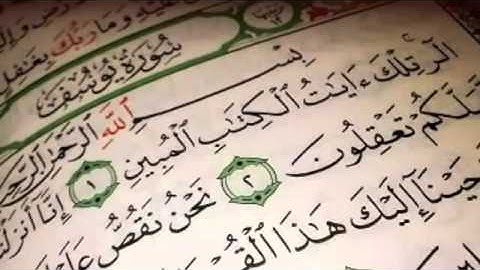 وَمَا رَبُّكَ بِغَٰفِلٍ
سُورَةُ يُوسُفَ
بِسْمِ ٱللَّهِ ٱلرَّحْمَٰنِ ٱلرَّحِيمِ
الٓر تِلْكَ ءَايَٰتُ ٱلْكِتَٰبِ ٱلْمُبِينِ ١ إِنَّآ أَنزَلْنَٰهُ
لَّعَلَّكُمْ تَعْقِلُونَ ٢ نَحْنُ نَقُصُّ عَلَيْكَ
أَوْحَيْنَآ إِلَيْكَ هَٰذَا ٱلْقُرْءَانَ